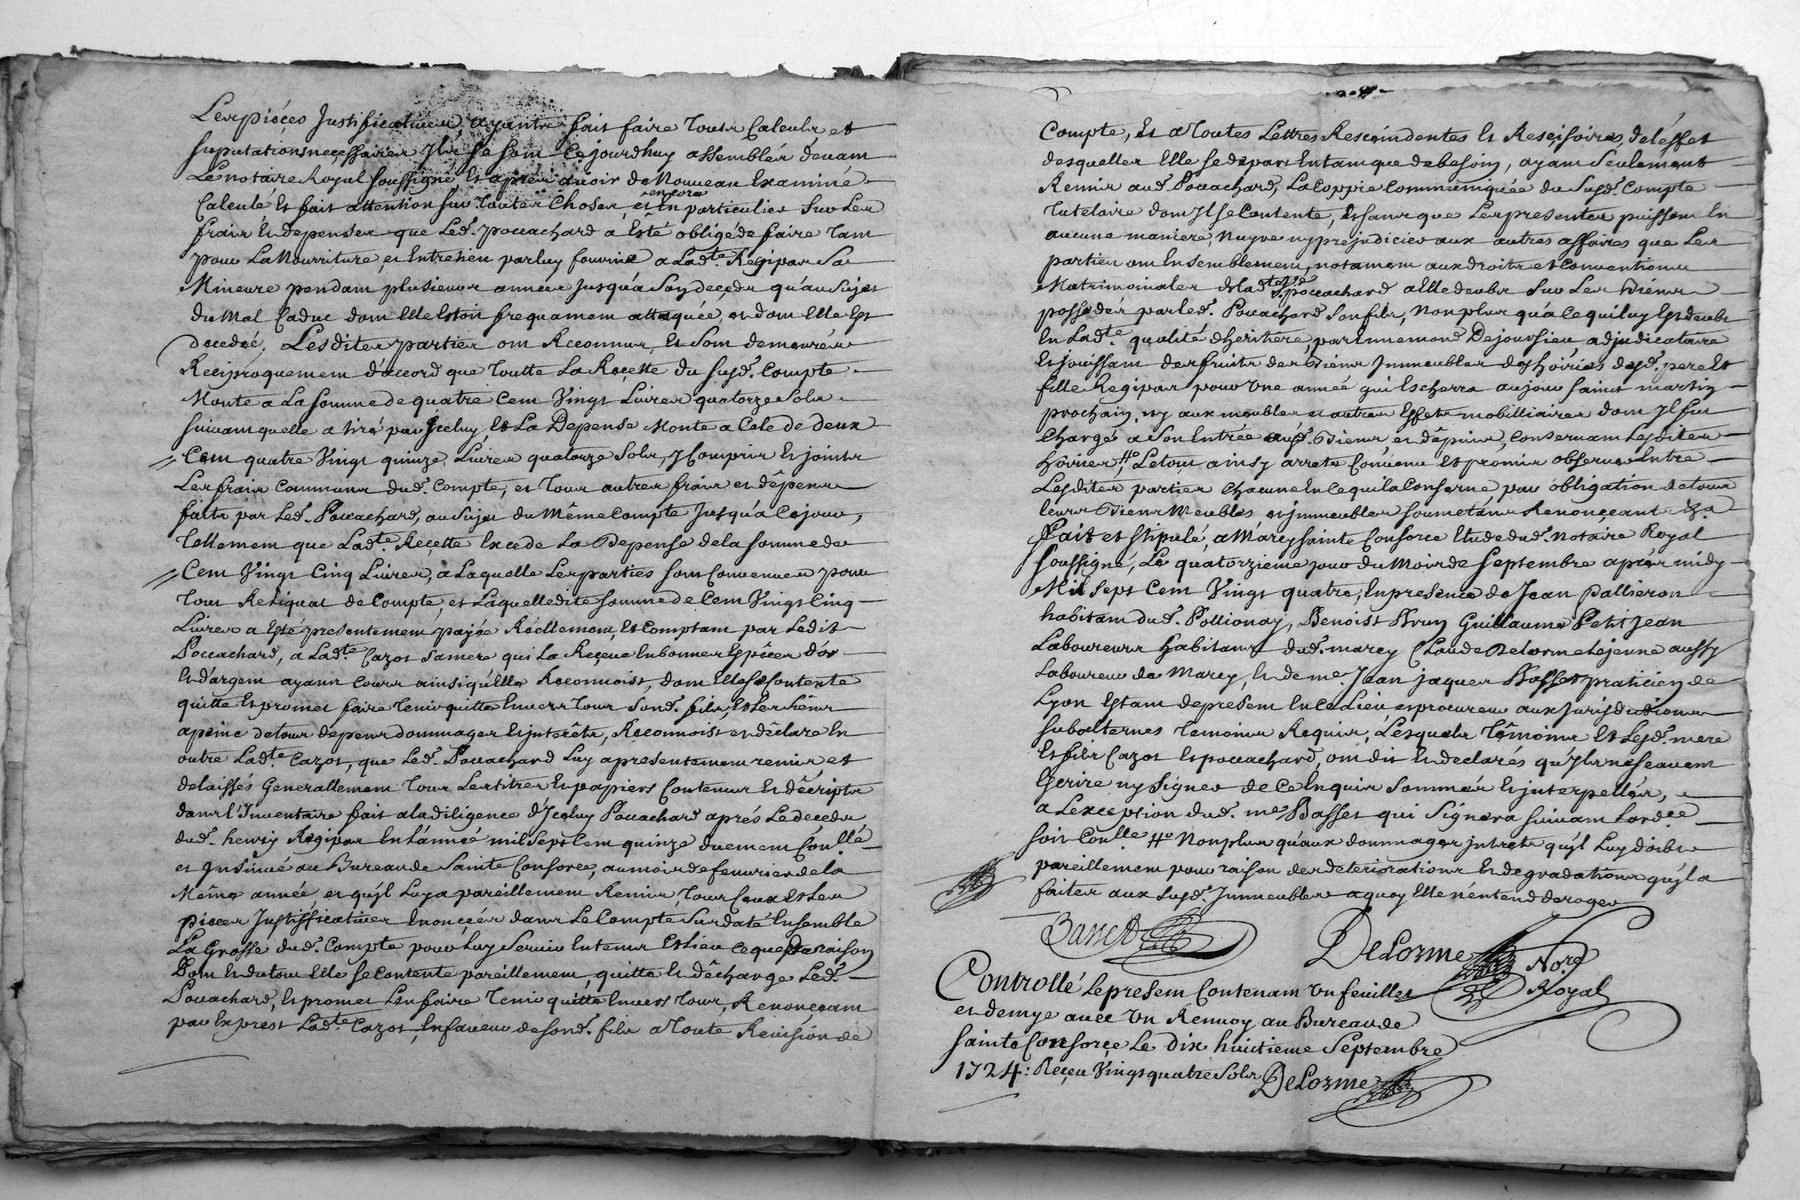 Les pieces Justificatives, ayants fait faire touts Calculs et
suputations necessaires Ils se sont Cejourdhuy assemblés devant
Le notaire Royal soussigné Et apres avoir de Nouveau Examiné
Calculé Et fait attention sur toutes Choses, et encore En particulier sur Les
frais Et depenses que Led. Pouachard a Esté obligé de faire tant
pour La Nourriture, et Entretien par luy fournie a Lad.te Regipas Sa
Mineure pendant plusieurs années jusqu'à Son deceds qu'au Sujet
du Mal Caduc dont Elle Estoit frequament attaquée, et dont Elle Est
decedée, Lesdites parties ont Reconnus, Et sont demeurés
Reciproquement d'accord que toutte La Recette du susd. Compte
Monte a La somme de quatre Cent Vingt Livres quatorze Sols
suivant quelle a tiré par Iceluy, Et La Depense Monte a Celle de deux
Cent quatre Vingt quinze Livres quatorze Sols, y Compris Et joints
Les frais Communs dud. Compte, et tous autres frais et dêpens
faits par Led. Pouachard, au sujet du Même Compte Jusqu'à Cejour,
tellement que Lad.te Recette Excede La Depense de la somme de
Cent Vingt Cinq Livres, a Laquelle Les parties sont Convenues pour
tout Reliquat de Compte, et Laquelle dite somme de Cent Vingt Cinq
Livres a Esté presentement payée Réellement, Et Comptant par Ledit
Pouachard, a Lad.te Cazot sa mere qui La Reçeue En bonnes Espêces d'or
Et d'argent ayants Cours ainsi qu'Elle Reconnoist, dont Elle se Contente
quitte Et promet faire tenir quitte Envers tous Sond. fils, Et Les siens
a peine de tous depens dommages Et interêts, Reconnoist et dêclare En
outre Lad.te Cazot, que Led. Pouachard Luy a presentement remis, et
delaissés Generallement tous Les titres Et papiers Contenus Et dêcripts
dans l'Inventaire fait a la diligence d'Iceluy Pouachard aprés Le deceds
dud. henry Regipas En l'année mil Sept Cent quinze duement Con.llé
et Insinué au Bureau de Sainte Consorce, au mois de fevrier de la
Même année, et qu'il Luy a pareillement Remis, tous Ceux Et Les
pieces Justifficatives Enonçées dans Le Compte Sus daté Ensemble
La Grosse dud. Compte pour Luy Servir En tems Et Lieu Ce que de raison
Dont Et du tout Elle se Contente pareillement, quitte Et dêcharge Led.
Pouachard, Et promet L'en faire tenir quitte Envers tous, Renonçeant
par Exprest Lad.te Cazot En faveur de sond. fils a toute Revision de
Compte, Et a toutes Lettres Resçindentes Et Resçisoires, de l'effet
desquelles Elle se depart En tant que de besoin, ayant seulement
Remis aud. Pouachard, La Coppie Communiquée du susd. Compte
tutelaire dont Il se Contente, Et sans que Les presentes puissent En
aucune maniere, Nuyre ny prejudicier aux autres affaires que Les
parties ont Ensemblement, notament aux droits et Conventions
Matrimoniales de lad.te Pouachard a Elle deubs sur Les Biens
possedés par led. Pouachard Son fils, Non plus qu'à Ce qui luy Est deubt
En Lad.te qualité d'heritiere, par Ennemond Dejoursieu adjudicataire
Et jouissant des fruits des Biens Immeubles des hoiries desd. pere Et
fille Regipas pour Une année qui Escherra au jour saint martin
prochain, ny aux meubles et autres Effets mobilliaires dont Il fut
Chargé a Son Entrée auxd. Biens, et dêpuis, Conservant Lesdites
hoiries # Le tout ainsy arreté Convenu Et promis observer Entre
Lesdites parties Chacune En Ce qui la Conserne, par obligation de tous
leurs Biens Meubles et immeubles soumetants Renonçeants &a
Fait et stipulé, a Marcy Sainte Consorce Etude dud. notaire Royal
soussigné, Le quatorzieme jour du Mois de septembre aprés midy
Mil sept Cent Vingt quatre, En presence de Jean Pallieron
habitant dud. Pollionay, Benoist Brun Guillaume Petit Jean
Laboureurs habitans dud. marcy Claude Delorme Lejeune aussy
Laboureur de Marcy, Et de me. Jean jaques Basset praticien de
Lyon Estant de present En Ce Lieu, et procureur aux Jurisdictions
subalternes temoins Requis, Lesquels têmoins Et Lesd. mere
Et fils Cazot Et pouachard, ont dit Et declarés qu'Ils ne sçeavent
Escrire ny Signer de Ce Enquis Sommés Et interpellés,
a L'exception dud. me Basset qui Signera suivant L'ord.ce
soit Con.lle # Non plus qu'aux dommages Interets qu'il Luy doibt
pareillement pour raison des deteriorations Et degradations qu'il a
faites aux susd. Immeubles a quoy Elle n'entend deroger
Basset
DeLorme No.re
Royal
Controllé Le present Contenant Un feuillet
et demye avec Un Renvoy au Bureau de
sainte Consorce Le dix huitieme Septembre
1724: Reçeu Vingt quatre Sols DeLorme